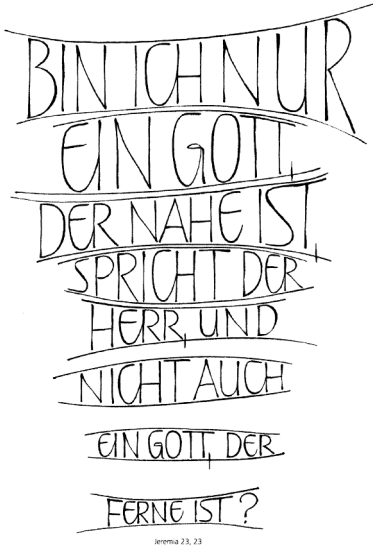 BIN ICH NUR
EIN GOTT,
DER NAHE IST,
SPRICHT DER
HERR, UND
NICHT AUCH
EIN GOTT, DER
FERNE IST?
Jeremia 23, 23